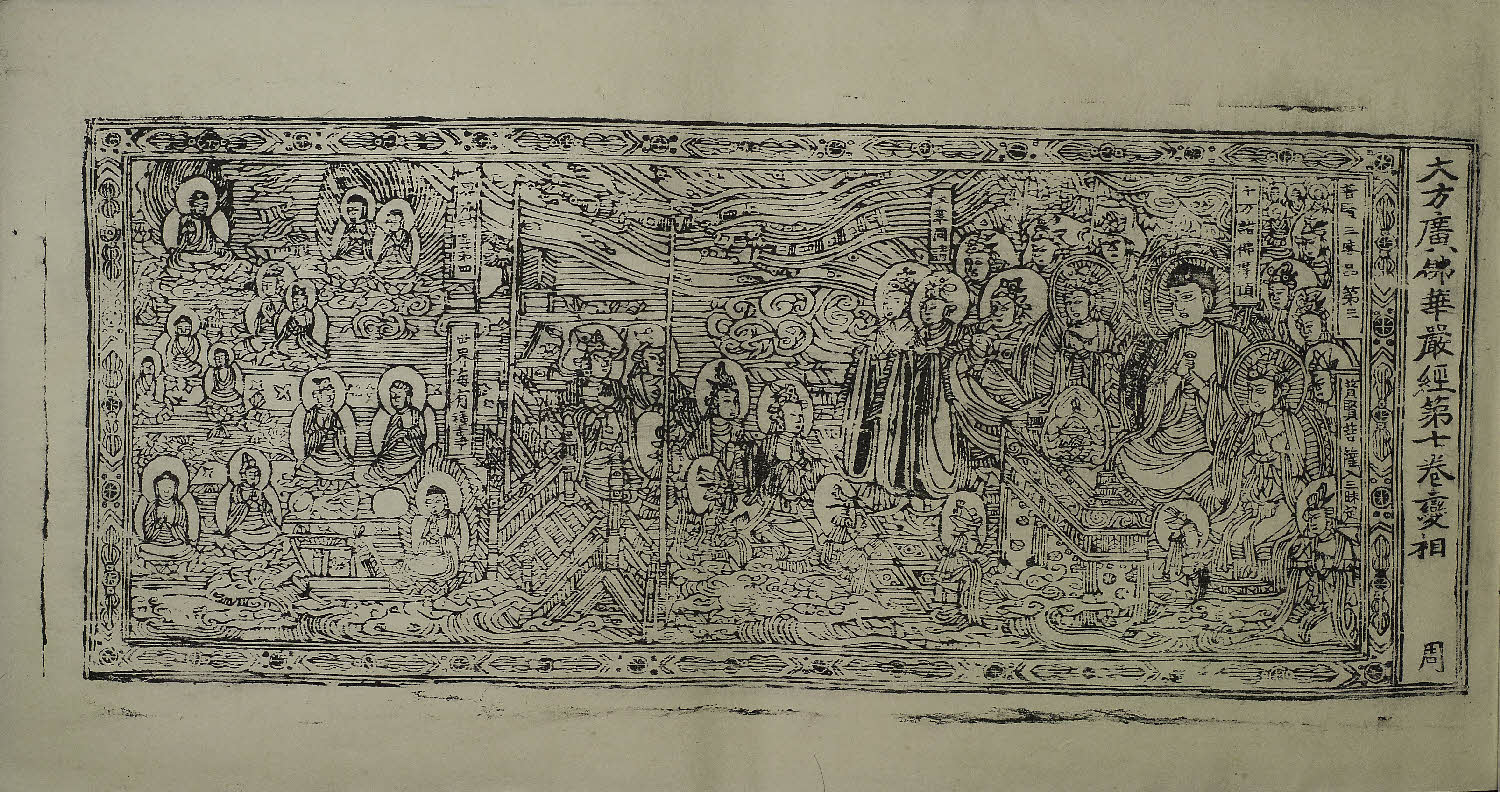 大方廣佛華嚴經第七卷變相 周
普賢三昧品第三
十方諸佛摩頂
普賢菩薩三昧定
世界海有種事